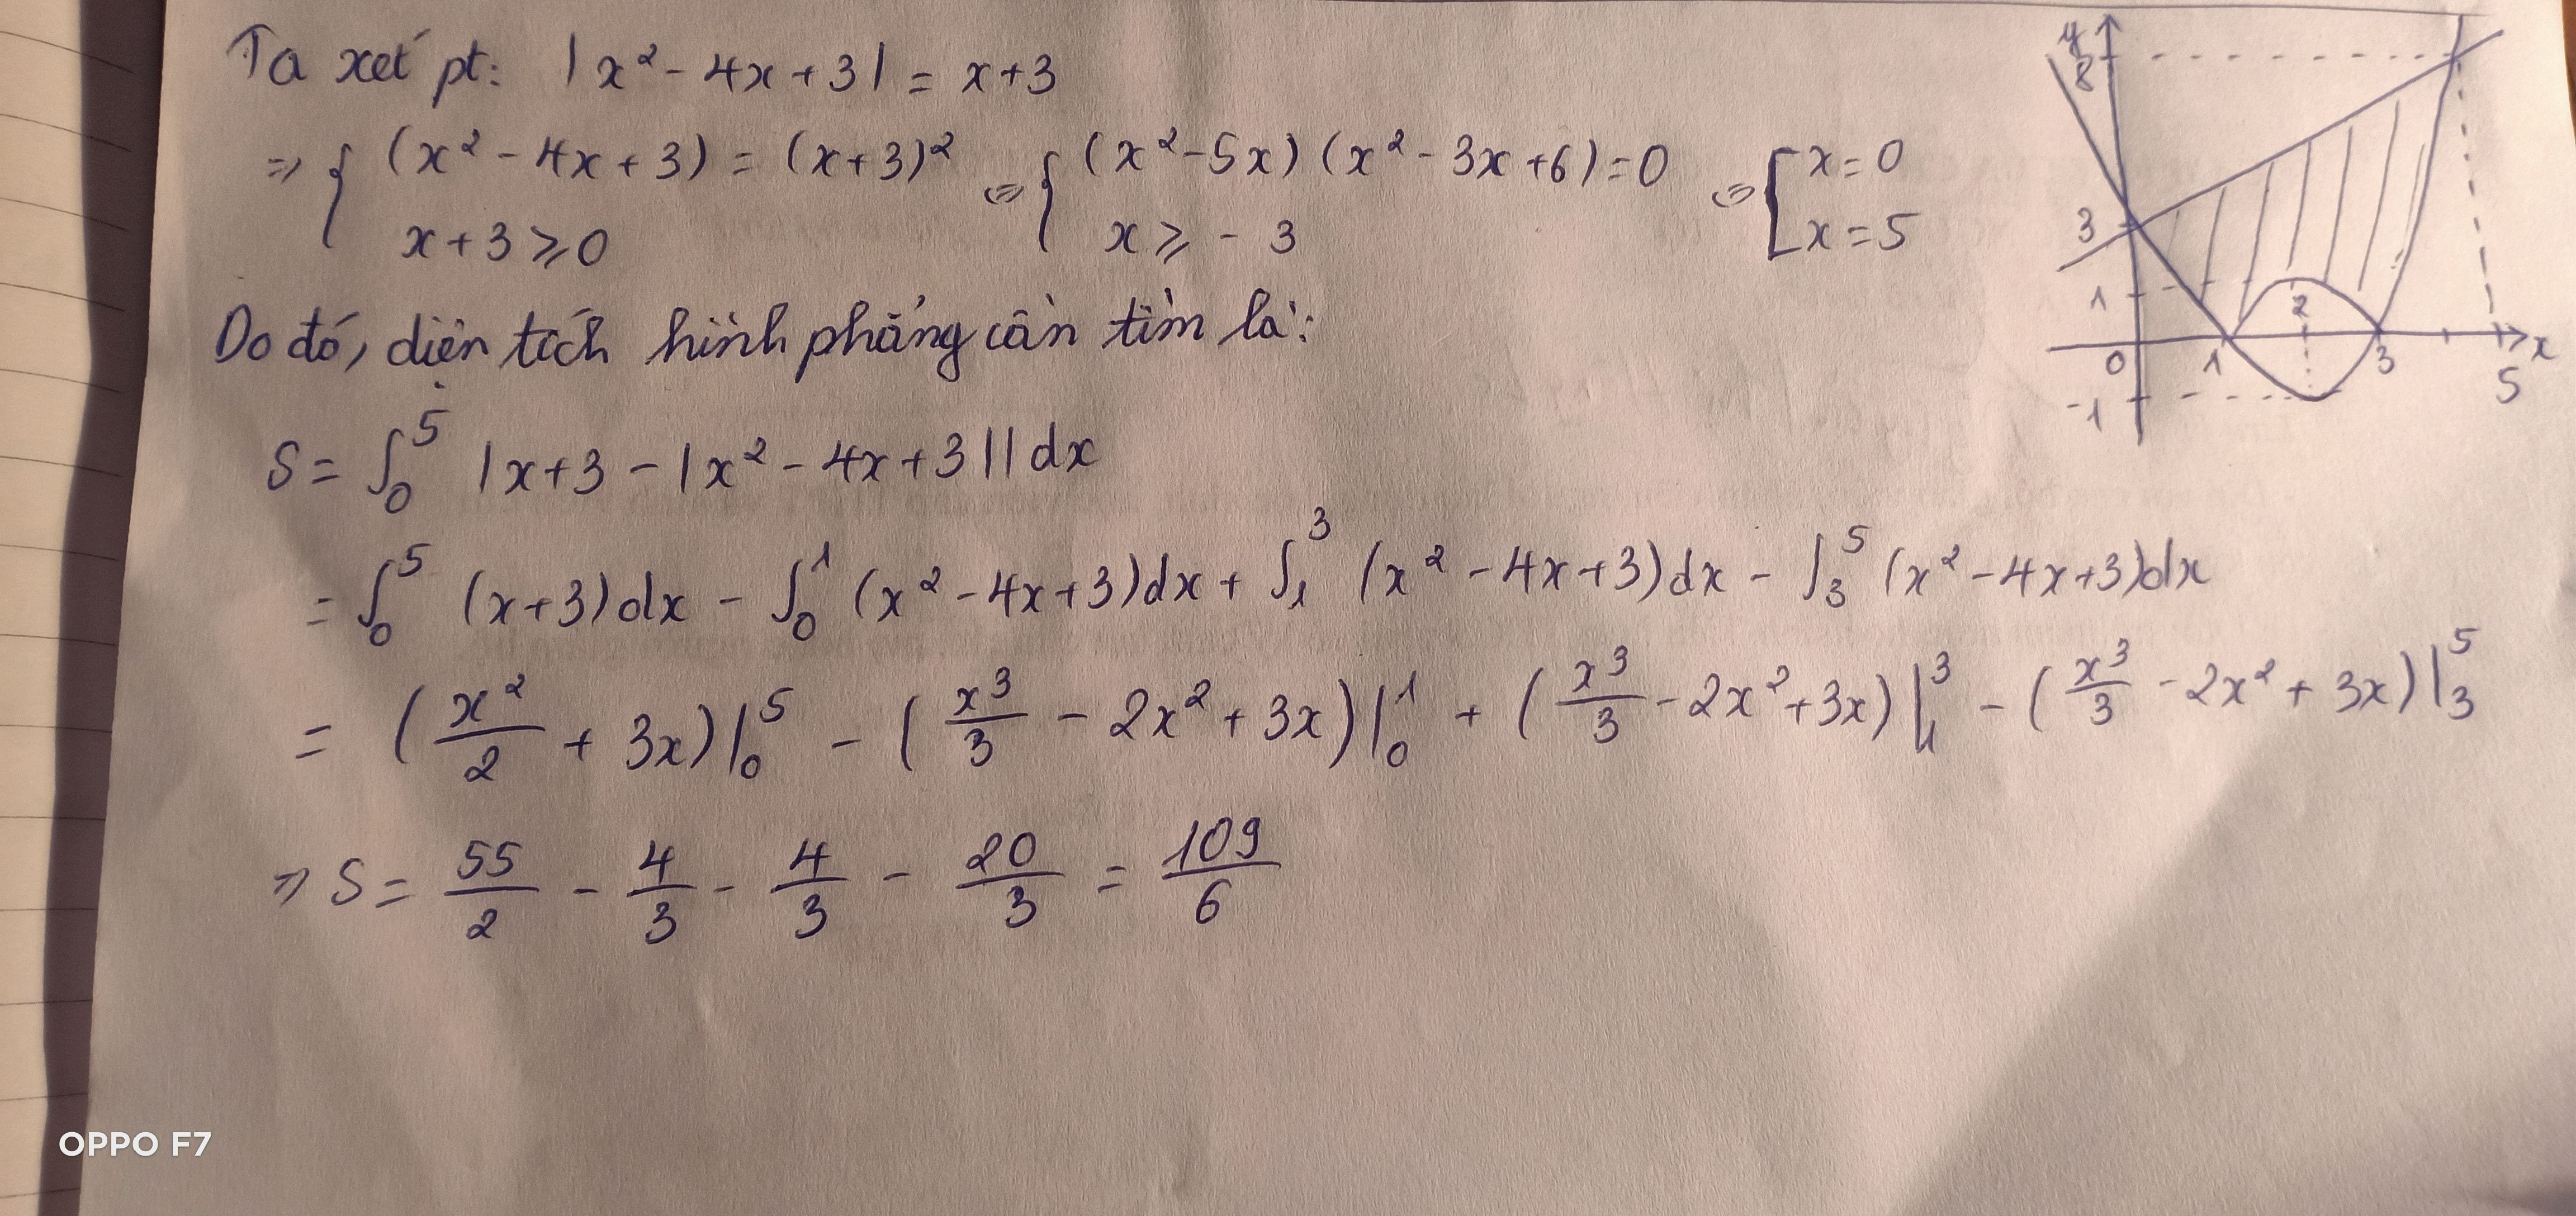 Ta xét pt: |x² - 4x + 3| = x + 3
=> { (x² - 4x + 3) = (x+3)² <=> { (x² - 5x) (x² - 3x + 6) = 0 <=> [ x = 0
x + 3 ≥ 0 x ≥ - 3 x = 5
Do đó, diện tích hình phẳng cần tìm là:
S = ∫₀⁵ |x + 3 - |x² - 4x + 3|| dx
= ∫₀⁵ (x+3) dx - ∫₀¹ (x² - 4x + 3) dx + ∫₁³ (x² - 4x + 3) dx - ∫₃⁵ (x² - 4x + 3) dx
= (x²/2 + 3x)|₀⁵ - (x³/3 - 2x² + 3x)|₀¹ + (x³/3 - 2x² + 3x)|₁³ - (x³/3 - 2x² + 3x)|₃⁵
=> S = 55/2 - 4/3 - 4/3 - 20/3 = 109/6
y
8
3
1
2
0 1 3 x
5
-1
OPPO F7